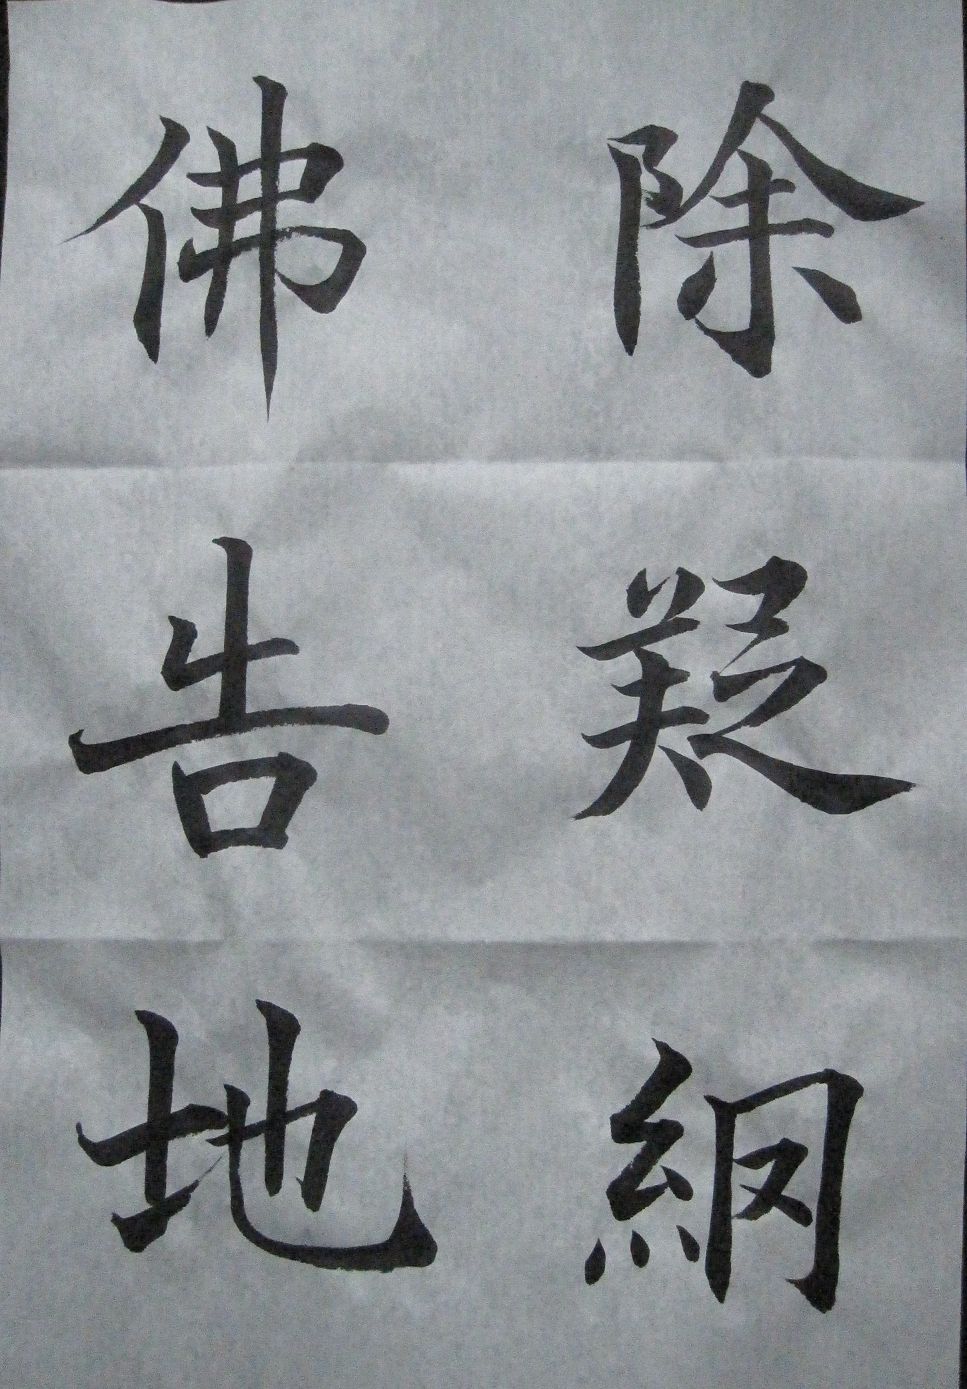 除疑網
佛告地